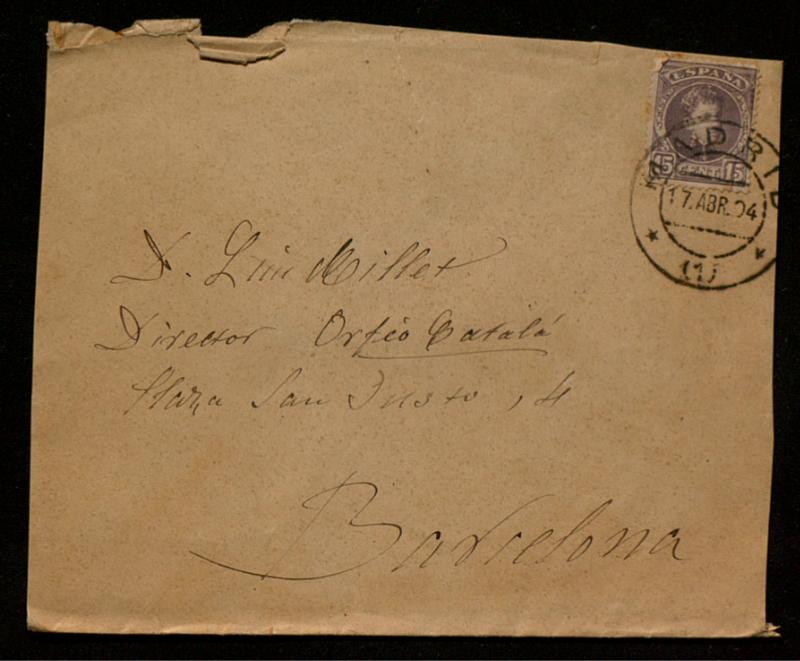 ESPAÑA
15 CENT. 15
MADRID
17.ABR.04
(1)
D. Luis Millet
Director Orfeó Catalá
Plaza San Justo, 4
Barcelona